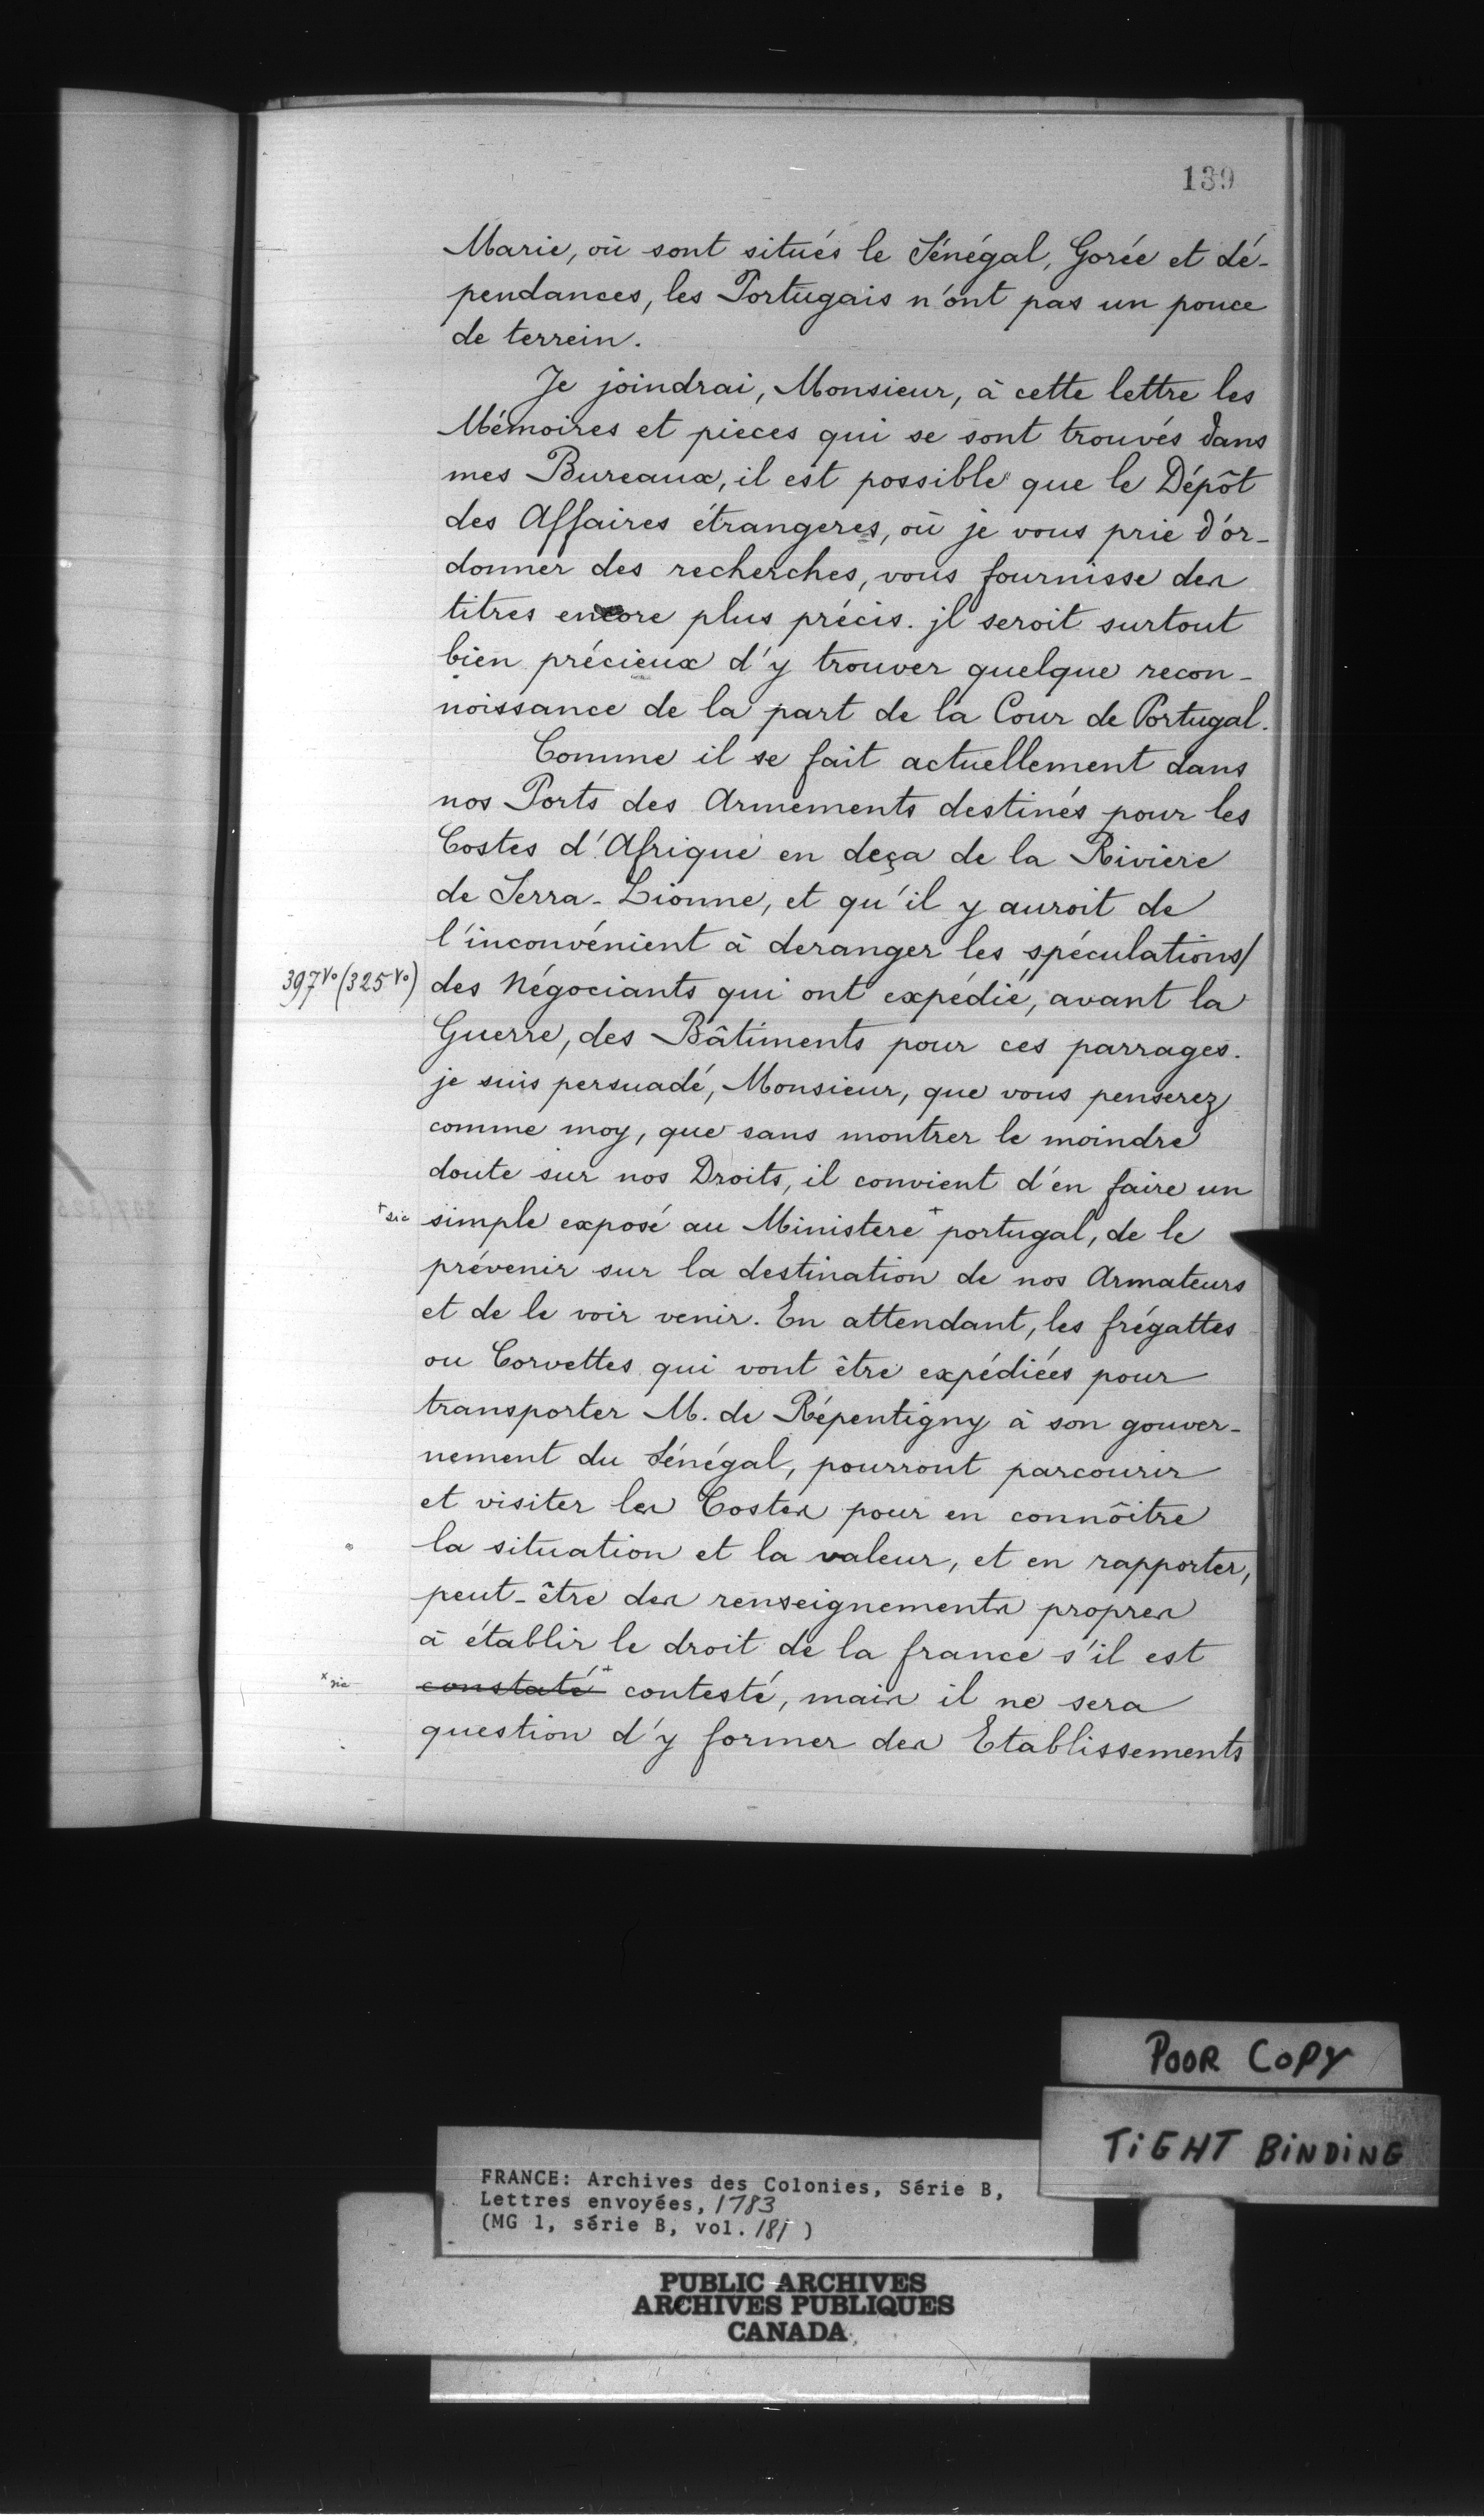 139
Marie, où sont situés le Sénégal, Gorée et dé-
pendances, les Portugais n'ont pas un pouce
de terrein.
Je joindrai, Monsieur, à cette lettre les
Mémoires et pieces qui se sont trouvés dans
mes Bureaux, il est possible que le Dépôt
des Affaires étrangeres, où je vous prie d'or-
donner des recherches, vous fournisse des
titres encore plus précis. jl seroit surtout
bien précieux d'y trouver quelque recon-
noissance de la part de la Cour de Portugal.
Comme il se fait actuellement dans
nos Ports des Armements destinés pour les
Costes d'Afrique en deça de la Riviere
de Serra-Lionne, et qu'il y auroit de
l'inconvénient à deranger les spéculations/
397 vo (325 vo) des Négociants qui ont expédié, avant la
Guerre, des Bâtiments pour ces parrages.
je suis persuadé, Monsieur, que vous penserez
comme moy, que sans montrer le moindre
doute sur nos Droits, il convient d'en faire un
+sic simple exposé au Ministere + portugal, de le
prévenir sur la destination de nos Armateurs
et de le voir venir. En attendant, les frégattes
ou Corvettes qui vont être expédiées pour
transporter M. de Répentigny à son gouver-
nement du Sénégal, pourront parcourir
et visiter les Costes pour en connôitre
la situation et la valeur, et en rapporter,
peut-être des renseignements propres
à établir le droit de la france s'il est
x sic constaté + contesté, mais il ne sera
question d'y former des Etablissements
POOR COPY
TIGHT BINDING
FRANCE: Archives des Colonies, Série B,
Lettres envoyées, 1783
(MG 1, série B, vol. 181)
PUBLIC ARCHIVES
ARCHIVES PUBLIQUES
CANADA